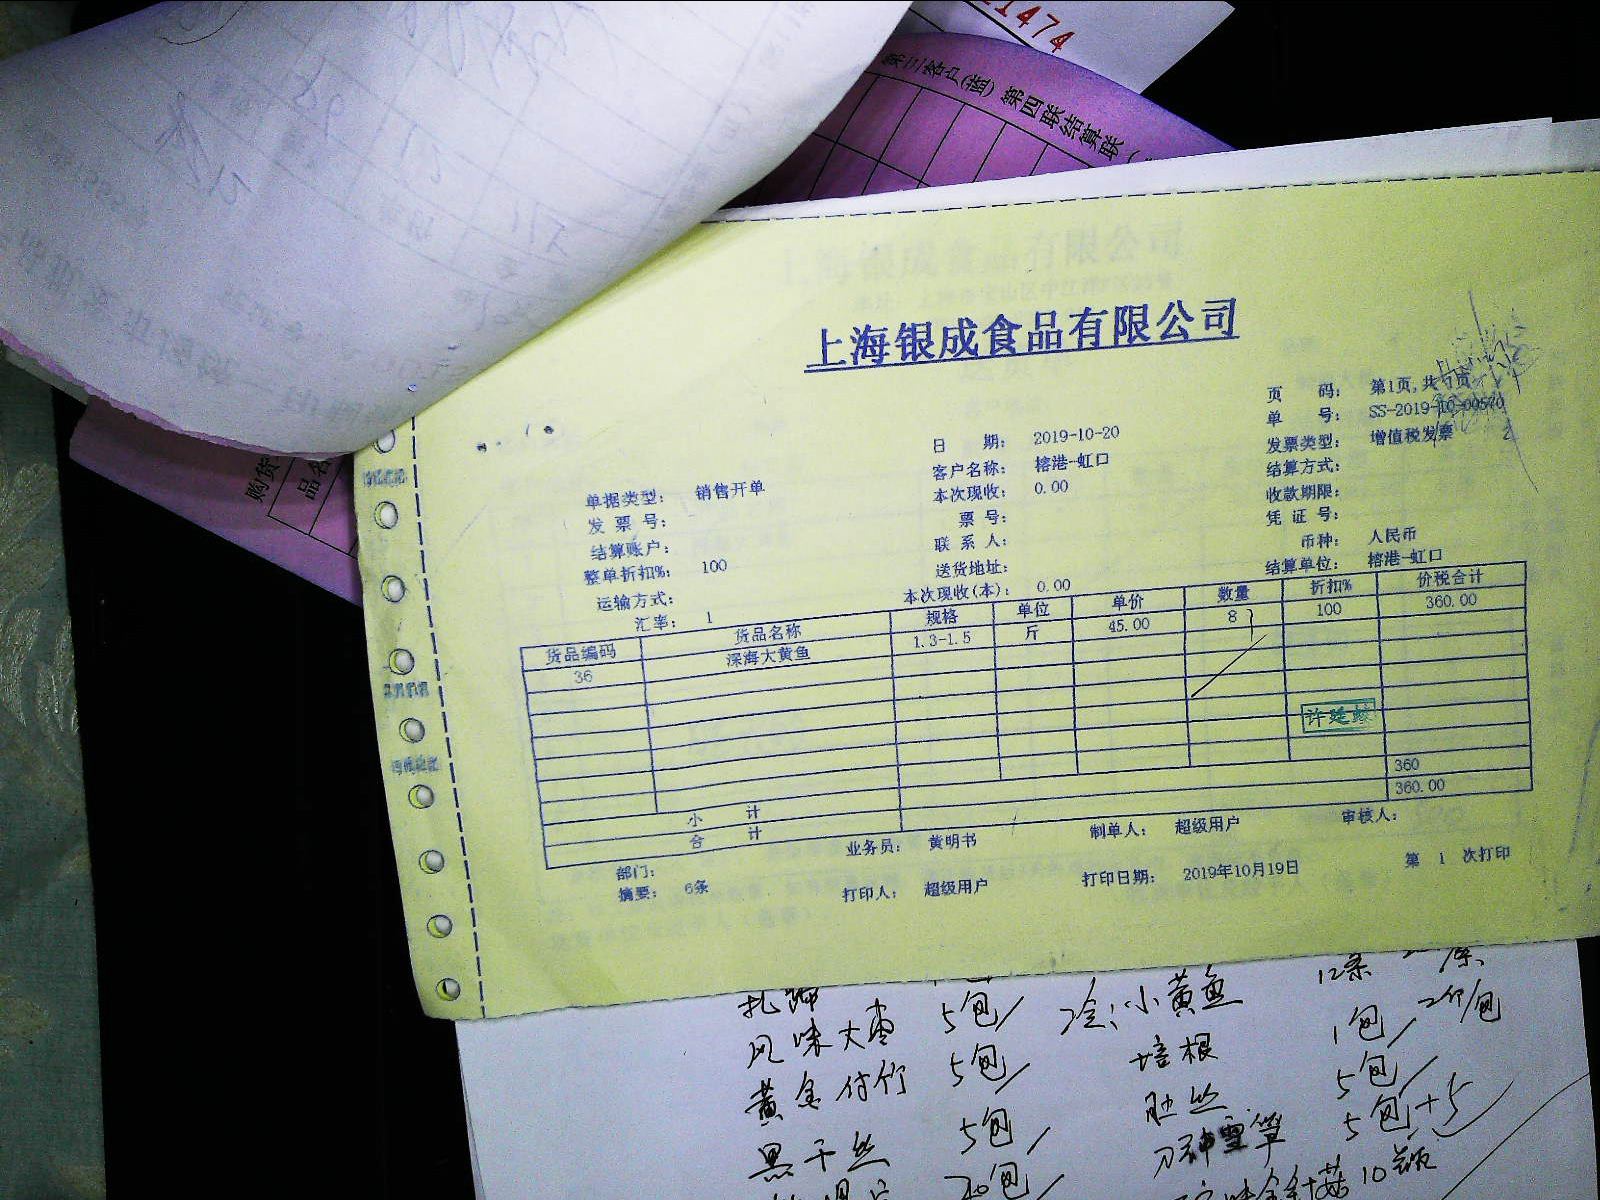 21474
第三客户(蓝) 第四联结算联
购货
品名
上海银成食品有限公司
页 码: 第1页,共1页
单 号: SS-2019-10-00570
日 期: 2019-10-20
发票类型: 增值税发票
客户名称: 榕港-虹口
结算方式:
单据类型: 销售开单
本次现收: 0.00
收款期限:
发 票 号:
票 号:
凭 证 号:
结算账户:
联 系 人:
币种: 人民币
整单折扣%: 100
送货地址:
结算单位: 榕港-虹口
运输方式:
本次现收(本): 0.00
汇率: 1
货品编码 货品名称 规格 单位 单价 数量 折扣% 价税合计
36 深海大黄鱼 1.3-1.5 斤 45.00 8 100 360.00
小 计 360
合 计 360.00
部门:
业务员: 黄明书
制单人: 超级用户
审核人:
摘要: 6条
打印人: 超级用户
打印日期: 2019年10月19日
第 1 次打印
扎蹄 小黄鱼 12条
风味大枣 5包 培根 1包
黄金付竹 5包 肚丝 5包
黑干丝 5包 5包+5
20包 10瓶